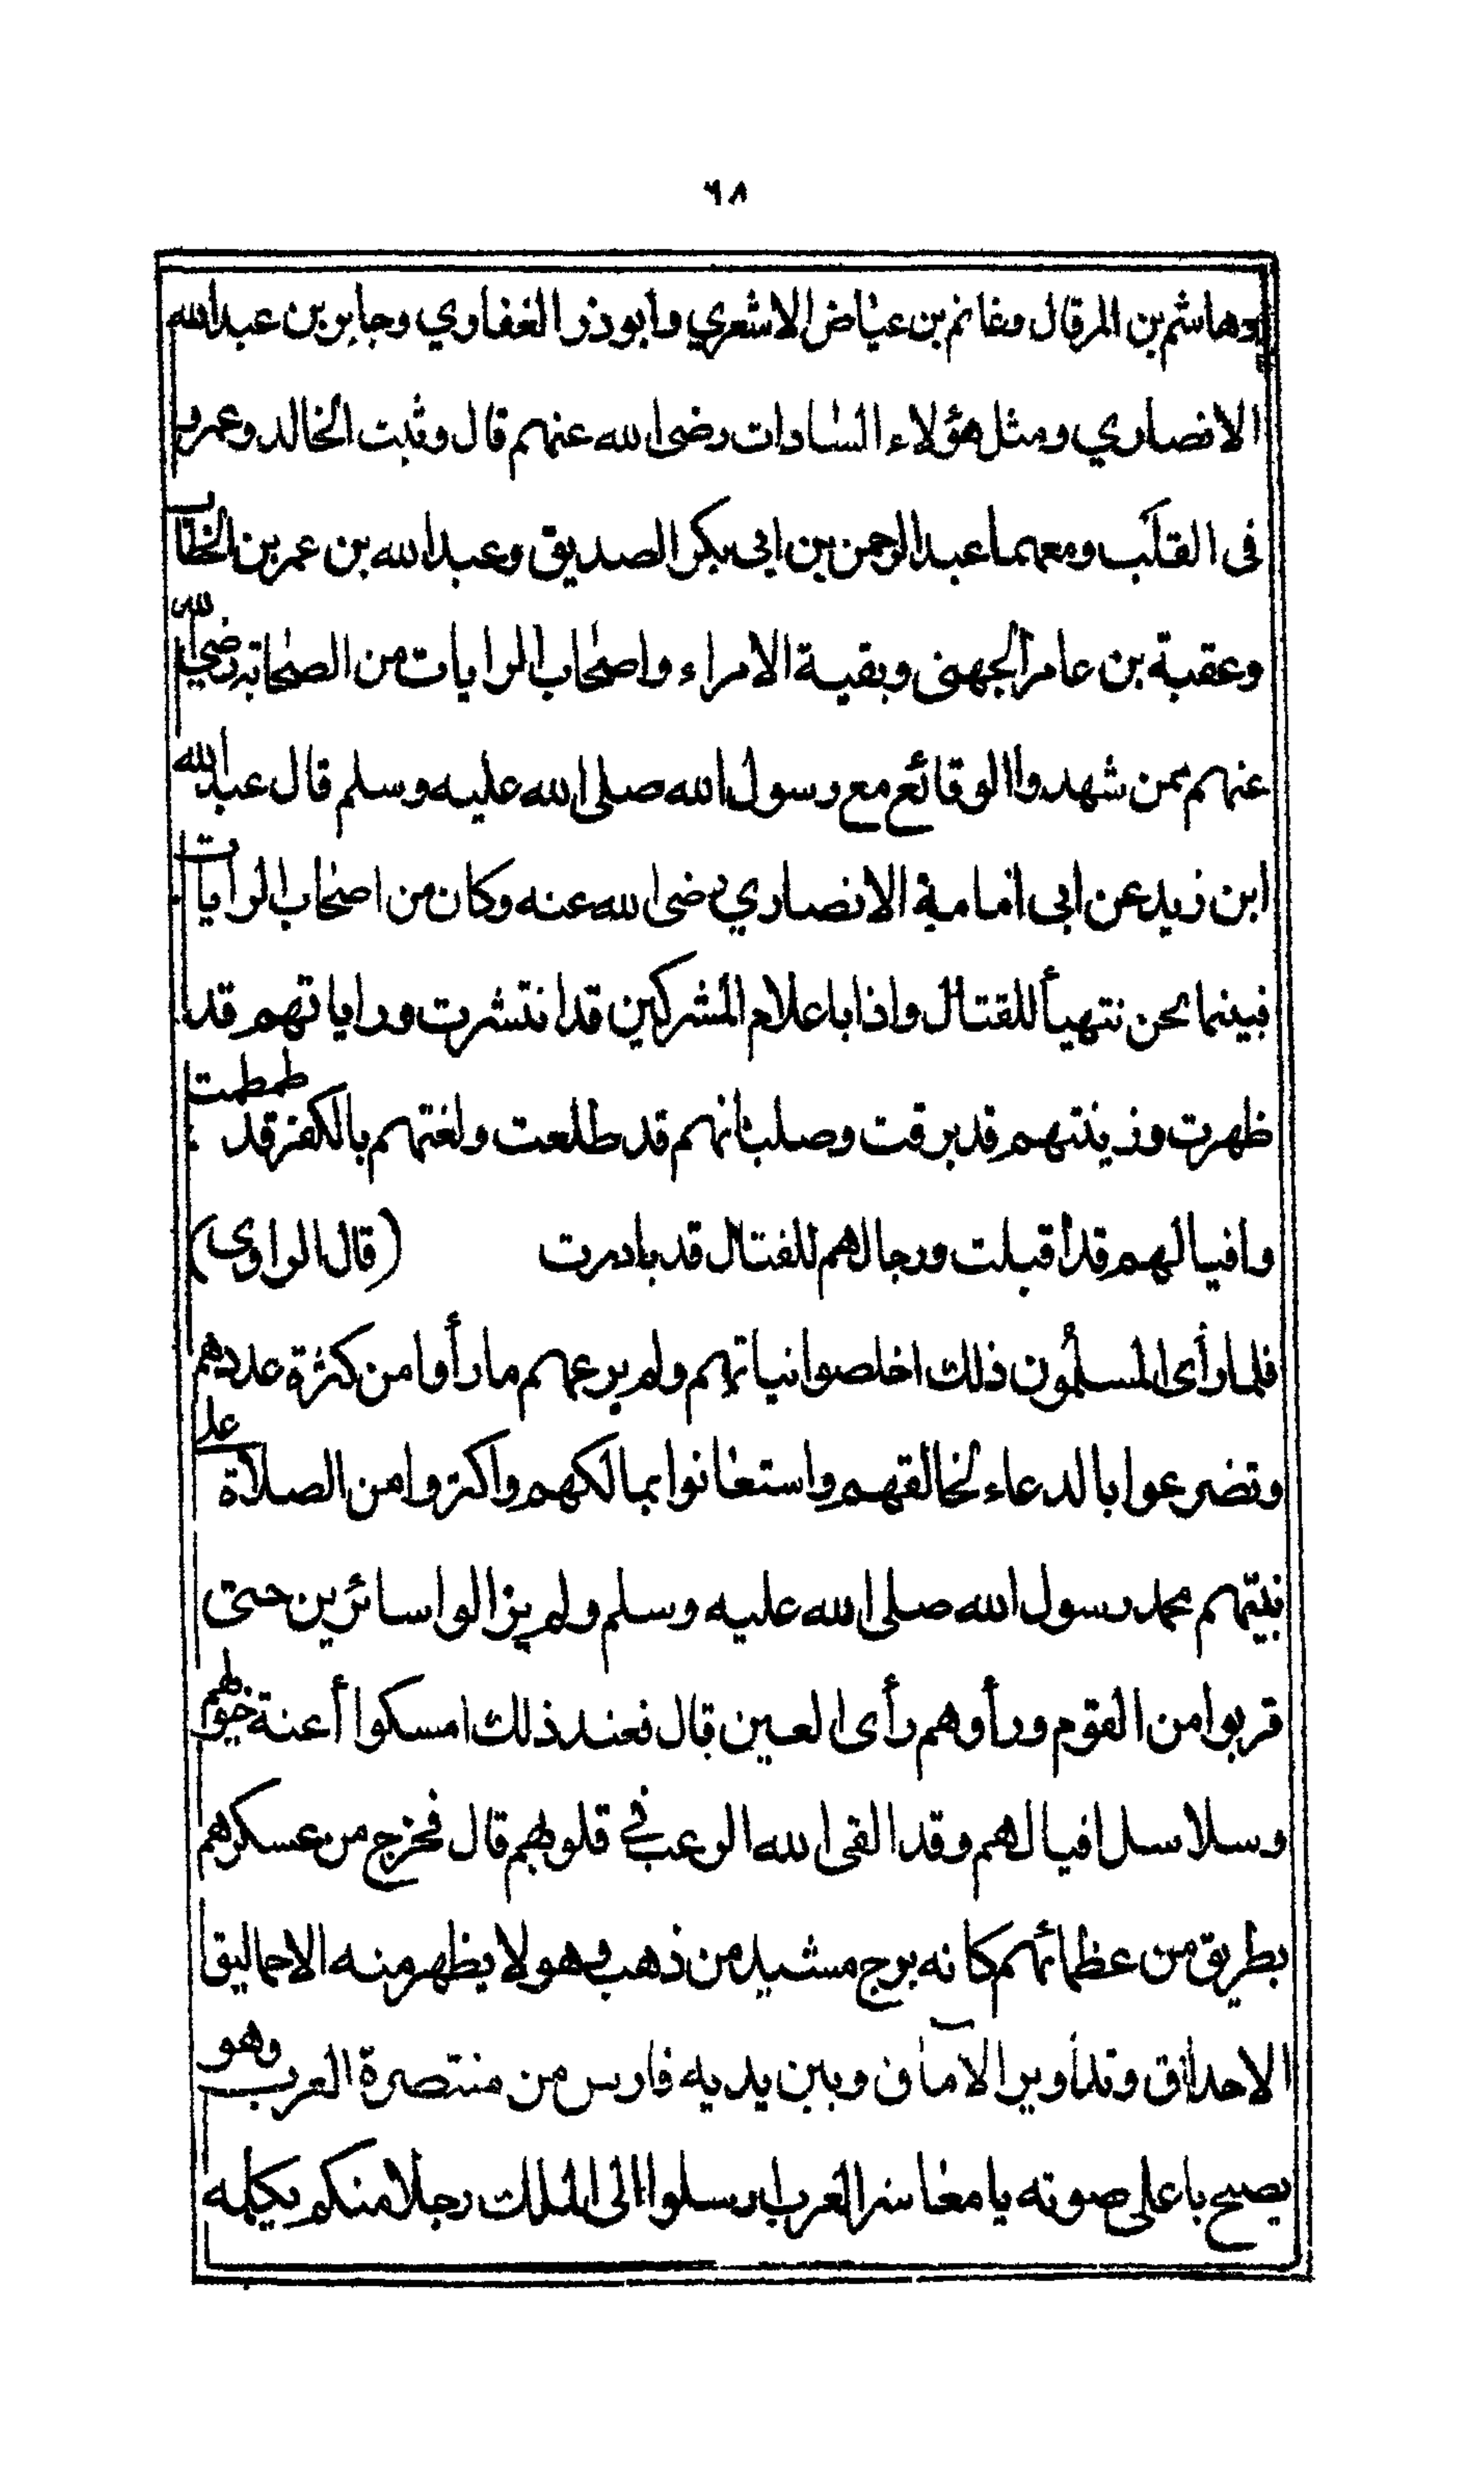 ٦٨
وهاشم بن المرقال وغانم بن عياض الاشعري وأبوذر الغفاري وجابر بن عبدالله
الانصاري ومثل هؤلاء السادات رضى الله عنهم قال وثبت الخالد وعمرو
فى القلب ومعهما عبدالرحمن بن ابى بكر الصديق وعبدالله بن عمر بن الخطاب
وعقبة بن عامر الجهنى وبقية الامراء واصحاب الرايات من الصحابة رضي الله
عنهم ممن شهدوا الوقائع مع رسول الله صلى الله عليه وسلم قال عبدالله
ابن زيد عن ابى امامة الانصاري رضى الله عنه وكان من اصحاب الرايات
فبينما نحن نتهيأ للقتال واذا باعلام المشركين قد انتشرت وراياتهم قد
ظهرت وزينتهم قد برقت وصلبانهم قد طلعت ولغتهم بالكفر قد طمطمت
وافيالهم قد أقبلت ورجالهم للقتال قد بادرت (قال الراوى)
فلما رأى المسلمون ذلك اخلصوا نياتهم ولم يرعهم ما رأوا من كثرة عددهم
وتضرعوا بالدعاء لخالقهم واستعانوا بمالكهم واكثروا من الصلاة على
نبيّهم محمد رسول الله صلى الله عليه وسلم ولم يزالوا سائرين حتى
قربوا من القوم ورأوهم رأى العين قال فعند ذلك امسكوا أعنة خيولهم
وسلاسل افيالهم وقد القى الله الرعب في قلوبهم قال فخرج من عسكرهم
بطريق من عظمائهم كانه برج مشيد من ذهب وهو لا يظهر منه الا حماليق
الاحداق وتدأوير الآماق وبين يديه فارس من منتصرة العرب وهو
يصيح باعلى صوته يا معاشر العرب ارسلوا الى الملك رجلا منكم يكلمه